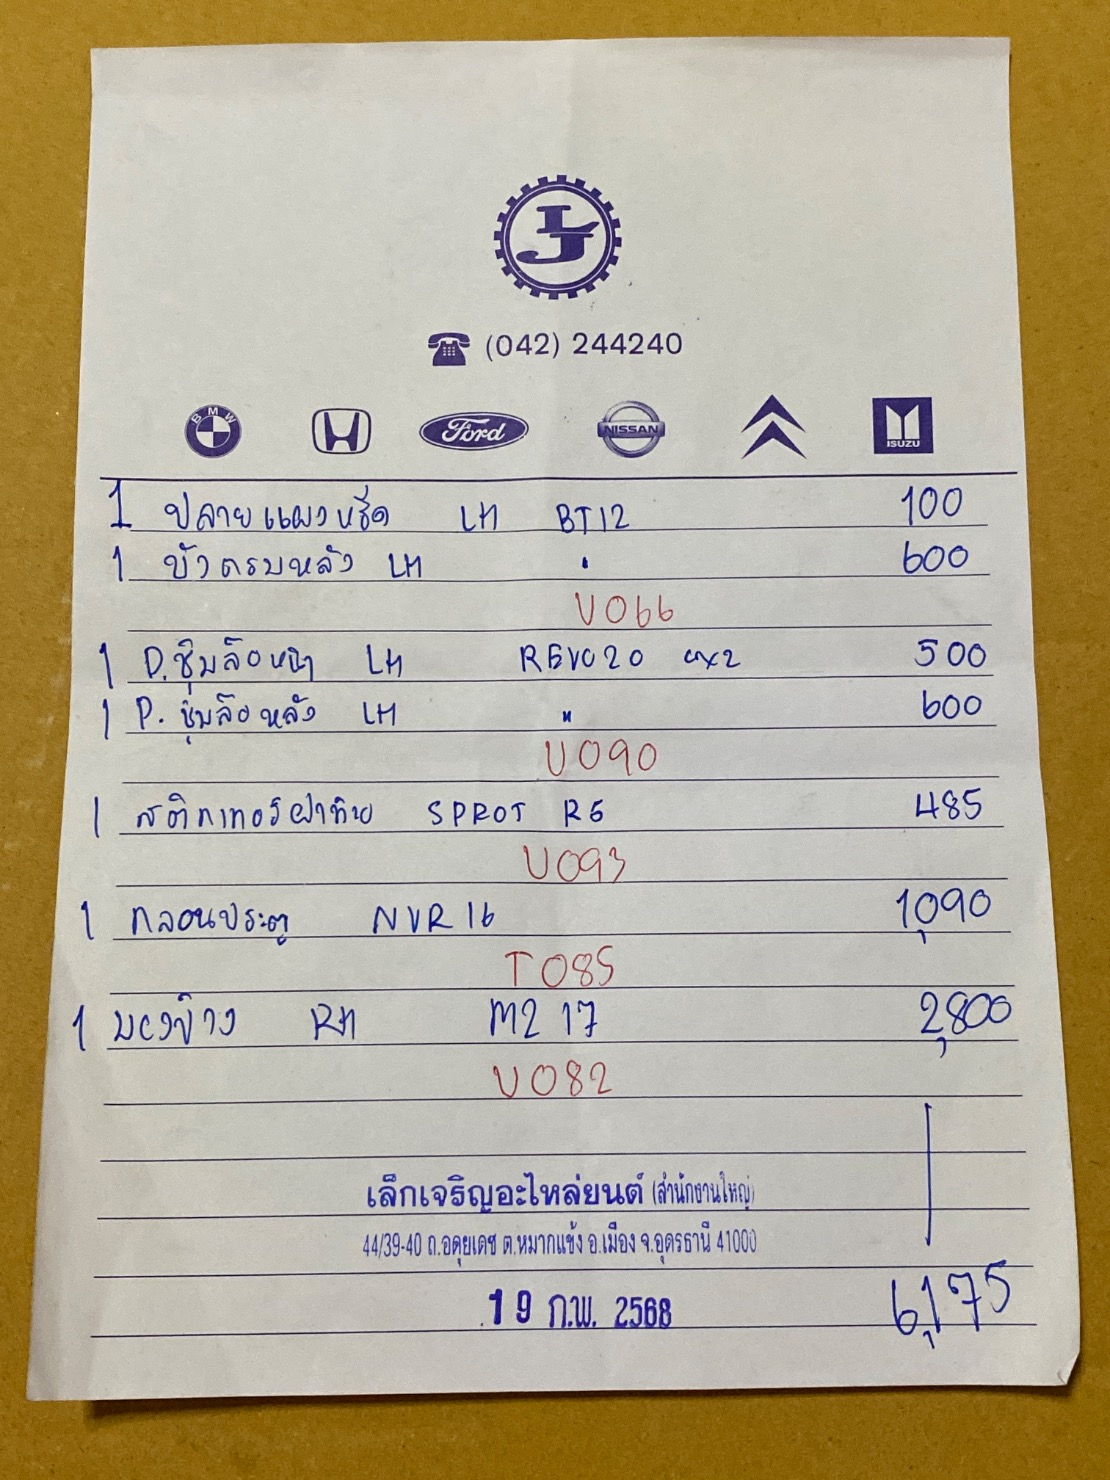 LJ
(042) 244240
BMW Ford NISSAN ISUZU
1 ปลายแผงหรีด LH BT12 100
1 บังตรมหลัง LH " 600
U066
1 D.ซุ้มล้อหน้า LH REVO20 4x2 500
1 P.ซุ้มล้อหลัง LH " 600
U090
1 สติกเกอร์ฝาท้าย SPROT R5 485
U093
1 กลอนประตู NVR16 1,090
T085
1 มองข้าง RH M2 17 2,800
U082
เล็กเจริญอะไหล่ยนต์ (สำนักงานใหญ่)
44/39-40 ถ.อดุยเดช ต.หมากแข้ง อ.เมือง จ.อุดรธานี 41000
19 ก.พ. 2568 6,175